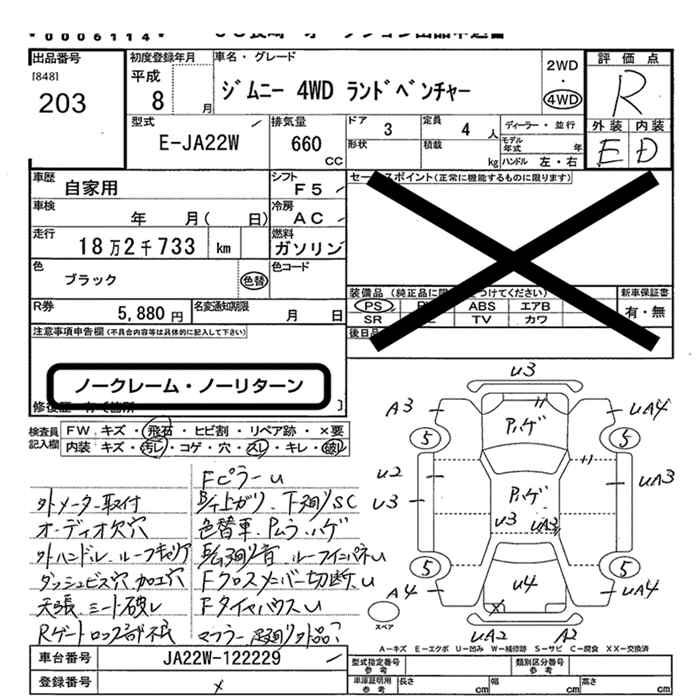 *0006114*
出品番号
[848]
203
初度登録年月
平成
8
月
車名・グレード
ジムニー 4WD ランドベンチャー
2WD
・
4WD
評価点
R
外装 内装
E D
型式
E-JA22W
排気量
660
CC
ドア 3
形状
定員 4 人
積載 kg
ディーラー・並行
モデル年式 年
ハンドル 左・右
車歴
自家用
シフト
F5
車検
年 月( 日)
冷房
AC
走行
18万2千733 km
燃料
ガソリン
色
ブラック
色替
色コード
R券
5,880円
名変通知期限
月 日
セールスポイント(正常に機能するものに限ります)
新車保証書
有・無
PS
ABS エアB
SR TV カワ
注意事項申告欄(不具合内容等は具体的に記入して下さい)
ノークレーム・ノーリターン
検査員
記入欄
FW キズ・飛石・ヒビ割・リペア跡・×要
内装 キズ・汚レ・コゲ・穴・スレ・キレ・破レ
Fピラーu
外メーター取付
オーディオ欠穴
色替車
ダッシュビス穴 加工穴
Fクロスメンバー切断.u
天張.シート破レ
FタイヤハウスU
車台番号
JA22W-122229
登録番号
u3
A3
UA4
5
5
ハゲ
u2
u3
UA3
ハゲ
u3
UA3
5
5
A4
u4
UA4
スペア
UA2
A2
A−キズ E−エクボ U−凹み W−補修跡 S−サビ C−腐食 XX−交換済
型式指定番号
参考
類別区分番号
参考
車庫証明用
参考
長さ cm
幅 cm
高さ cm